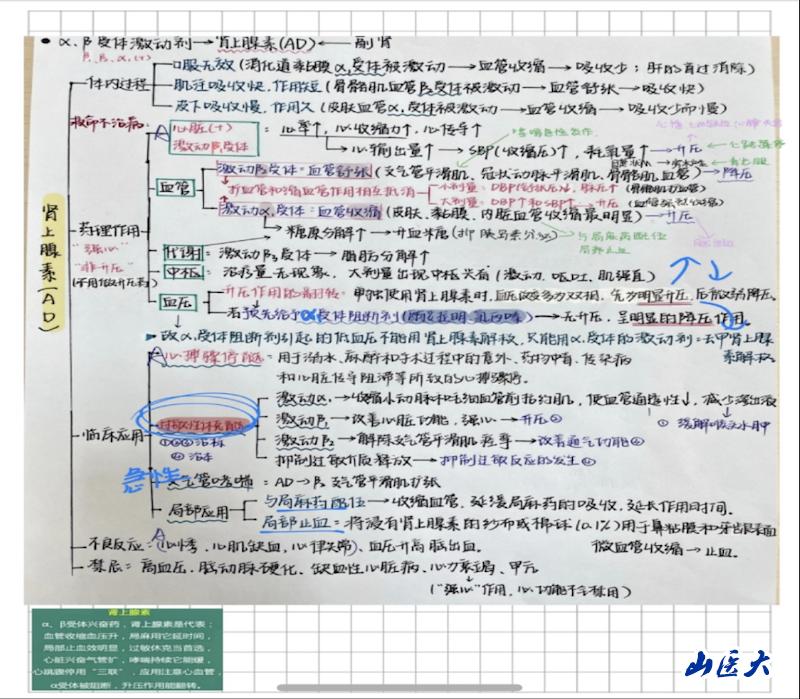 α、β受体激动剂→肾上腺素(AD)←副肾
β₁β₂α₁(+)
口服无效(消化道黏膜α₁受体被激动→血管收缩→吸收少；肝的首过消除)
体内过程
肌注吸收快,作用短(骨骼肌血管β₂受体被激动→血管舒张→吸收快)
皮下吸收慢,作用久(皮肤血管α₁受体被激动→血管收缩→吸收少而慢)
救命不治病
A
心脏(+)
激动β₁受体
:心率↑,心收缩力↑,心传导↑
→心输出量↑→SBP(收缩压)↑,耗氧量↑→升压
激动β₂受体:血管舒张(支气管平滑肌、冠状动脉平滑肌、骨骼肌血管)→降压
血管
扩血管和缩血管作用相互抵消
小剂量:DBP(舒张压)↓,脉压↑(骨骼肌扩血管)
大剂量:DBP↑和SBP↑→升压
激动α₁受体:血管收缩(皮肤、黏膜、内脏血管收缩最明显)→升压
肾上腺素(AD)
药理作用
"强心"
"非升压"
糖原分解↑→升血糖(抑胰岛素分泌)
与局麻药配伍
局部止血
代谢:激动β₃受体→脂肪分解↑
中枢:治疗量无现象,大剂量出现中枢兴奋(激动、呕吐、肌强直)
血压
升压作用的翻转:单独使用肾上腺素时,血压改变多为双相,先为明显升压,后微弱降压。
若预先给予α受体阻断剂→无升压,呈明显的降压作用。
故α₁受体阻断剂引起的低血压不能用肾上腺素解救,只能用α₁受体的激动剂:去甲肾上腺素解救。
A
心搏骤停:用于溺水、麻醉和手术过程中的意外、药物中毒、传染病
和心脏传导阻滞等所致的心搏骤停。
激动α₁→收缩小动脉和毛细血管前括约肌,使血管通透性↓,减少渗出液
临床应用
过敏性休克首选
激动β₁→改善心脏功能,强心→升压②
①缓解喉头水肿
①②③治标
④治本
激动β₂→解除支气管平滑肌痉挛→改善通气功能③
抑制过敏介质释放→抑制过敏反应的发生④
急性
支气管哮喘:AD→β₂支气管平滑肌扩张
局部应用
与局麻药配伍→收缩血管,延缓局麻药的吸收,延长作用时间。
局部止血:将浸有肾上腺素的纱布或棉球(0.1%)用于鼻粘膜和牙龈表面
微血管收缩→止血。
A
不良反应:(心悸,心肌缺血,心律失常)、血压升高脑出血。
禁忌:高血压、脑动脉硬化、缺血性心脏病、心力衰竭、甲亢
("强心"作用,心功能不全禁用)
肾上腺素
α、β受体兴奋药，肾上腺素是代表；
血管收缩血压升，局麻用它延时间，
局部止血效明显，过敏休克当首选，
心脏兴奋气管扩，哮喘持续它能缓，
心跳骤停用“三联”，应用注意心血管，
α受体被阻断，升压作用能翻转。
山医大